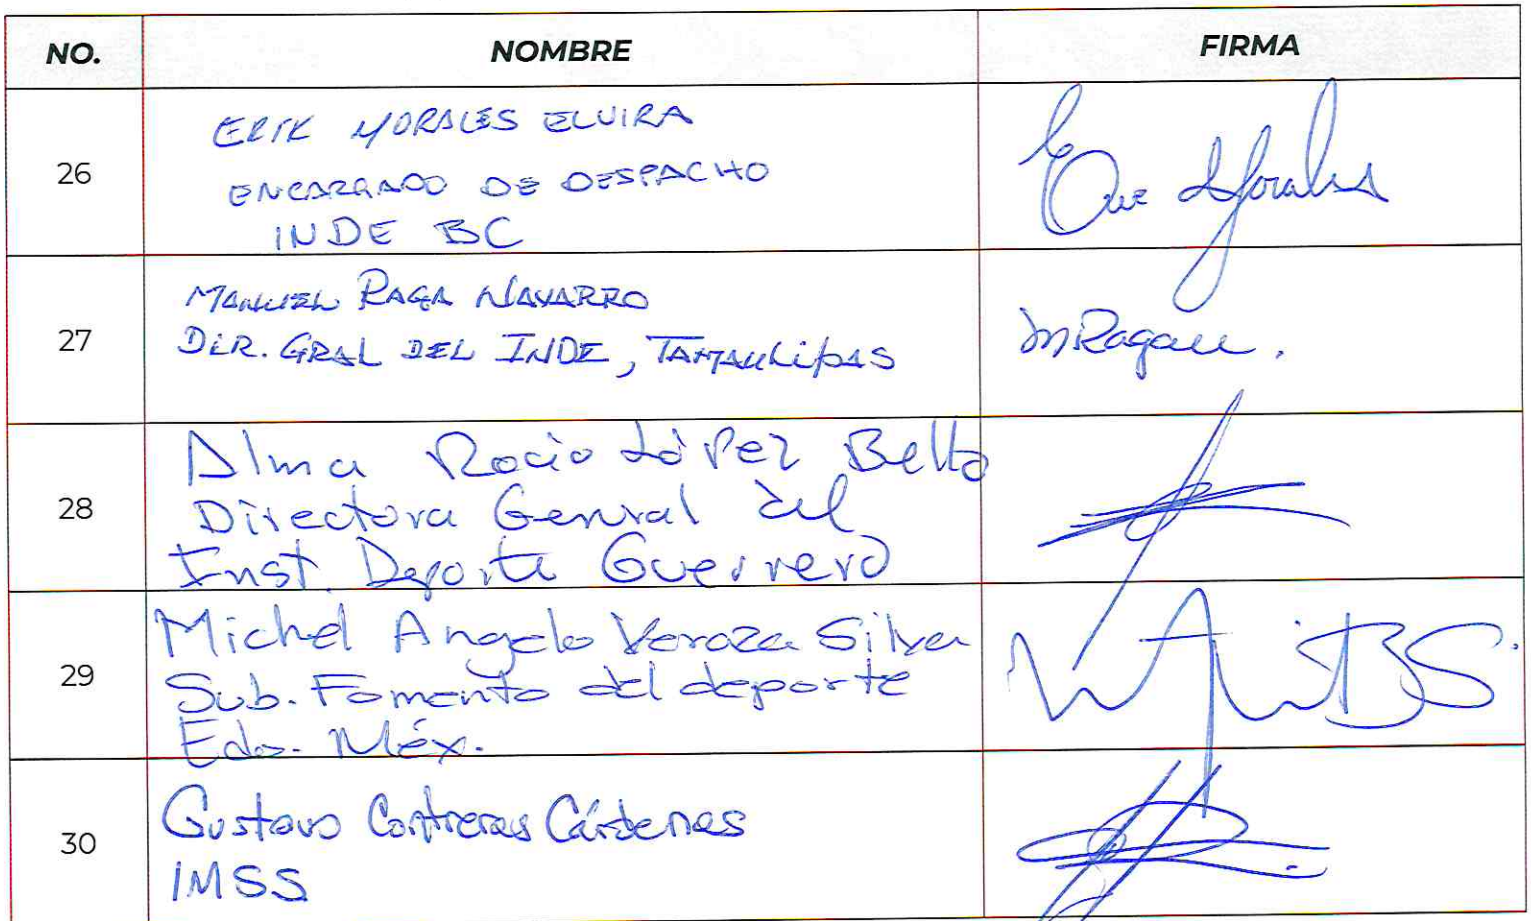 NO. NOMBRE FIRMA
26
ERIK MORALES ELVIRA
ENCARGADO DE DESPACHO
INDE BC
27
MANUEL RAGA NAVARRO
DIR. GRAL DEL INDE, TAMAULIPAS
MRaga
28
Alma Rocio López Bello
Directora General del
Inst. Deporte Guerrero
29
Michel Angelo Silva
Sub. Fomento del deporte
Edo. Méx.
30
Gustavo Contreras Cárdenas
IMSS